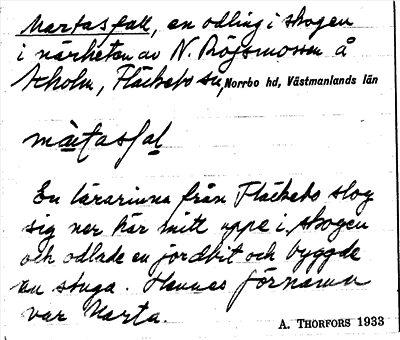 Martasfall, en odling i skogen
i närheten av N. Rögsmossen å
Åsholm, Fläckebo sn, Norrbo hd, Västmanlands län
màrtasfal
En lärarinna från Fläckebo slog
sig ner här mitt uppe i skogen
och odlade en jordbit och byggde
en stuga. Hennes förnamn
var Marta.
A. THORFORS 1933